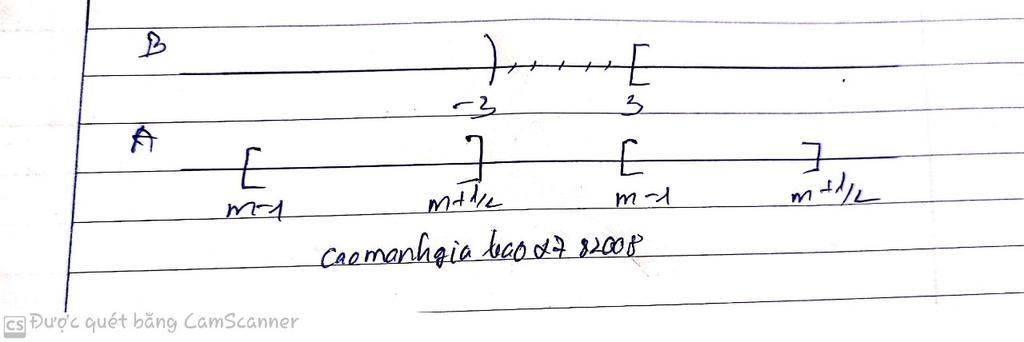 B
) [
-3 3
A
[ ] [ ]
m-1 m+1/2 m-1 m+1/2
caomanhgia bao 82008
CS Được quét bằng CamScanner